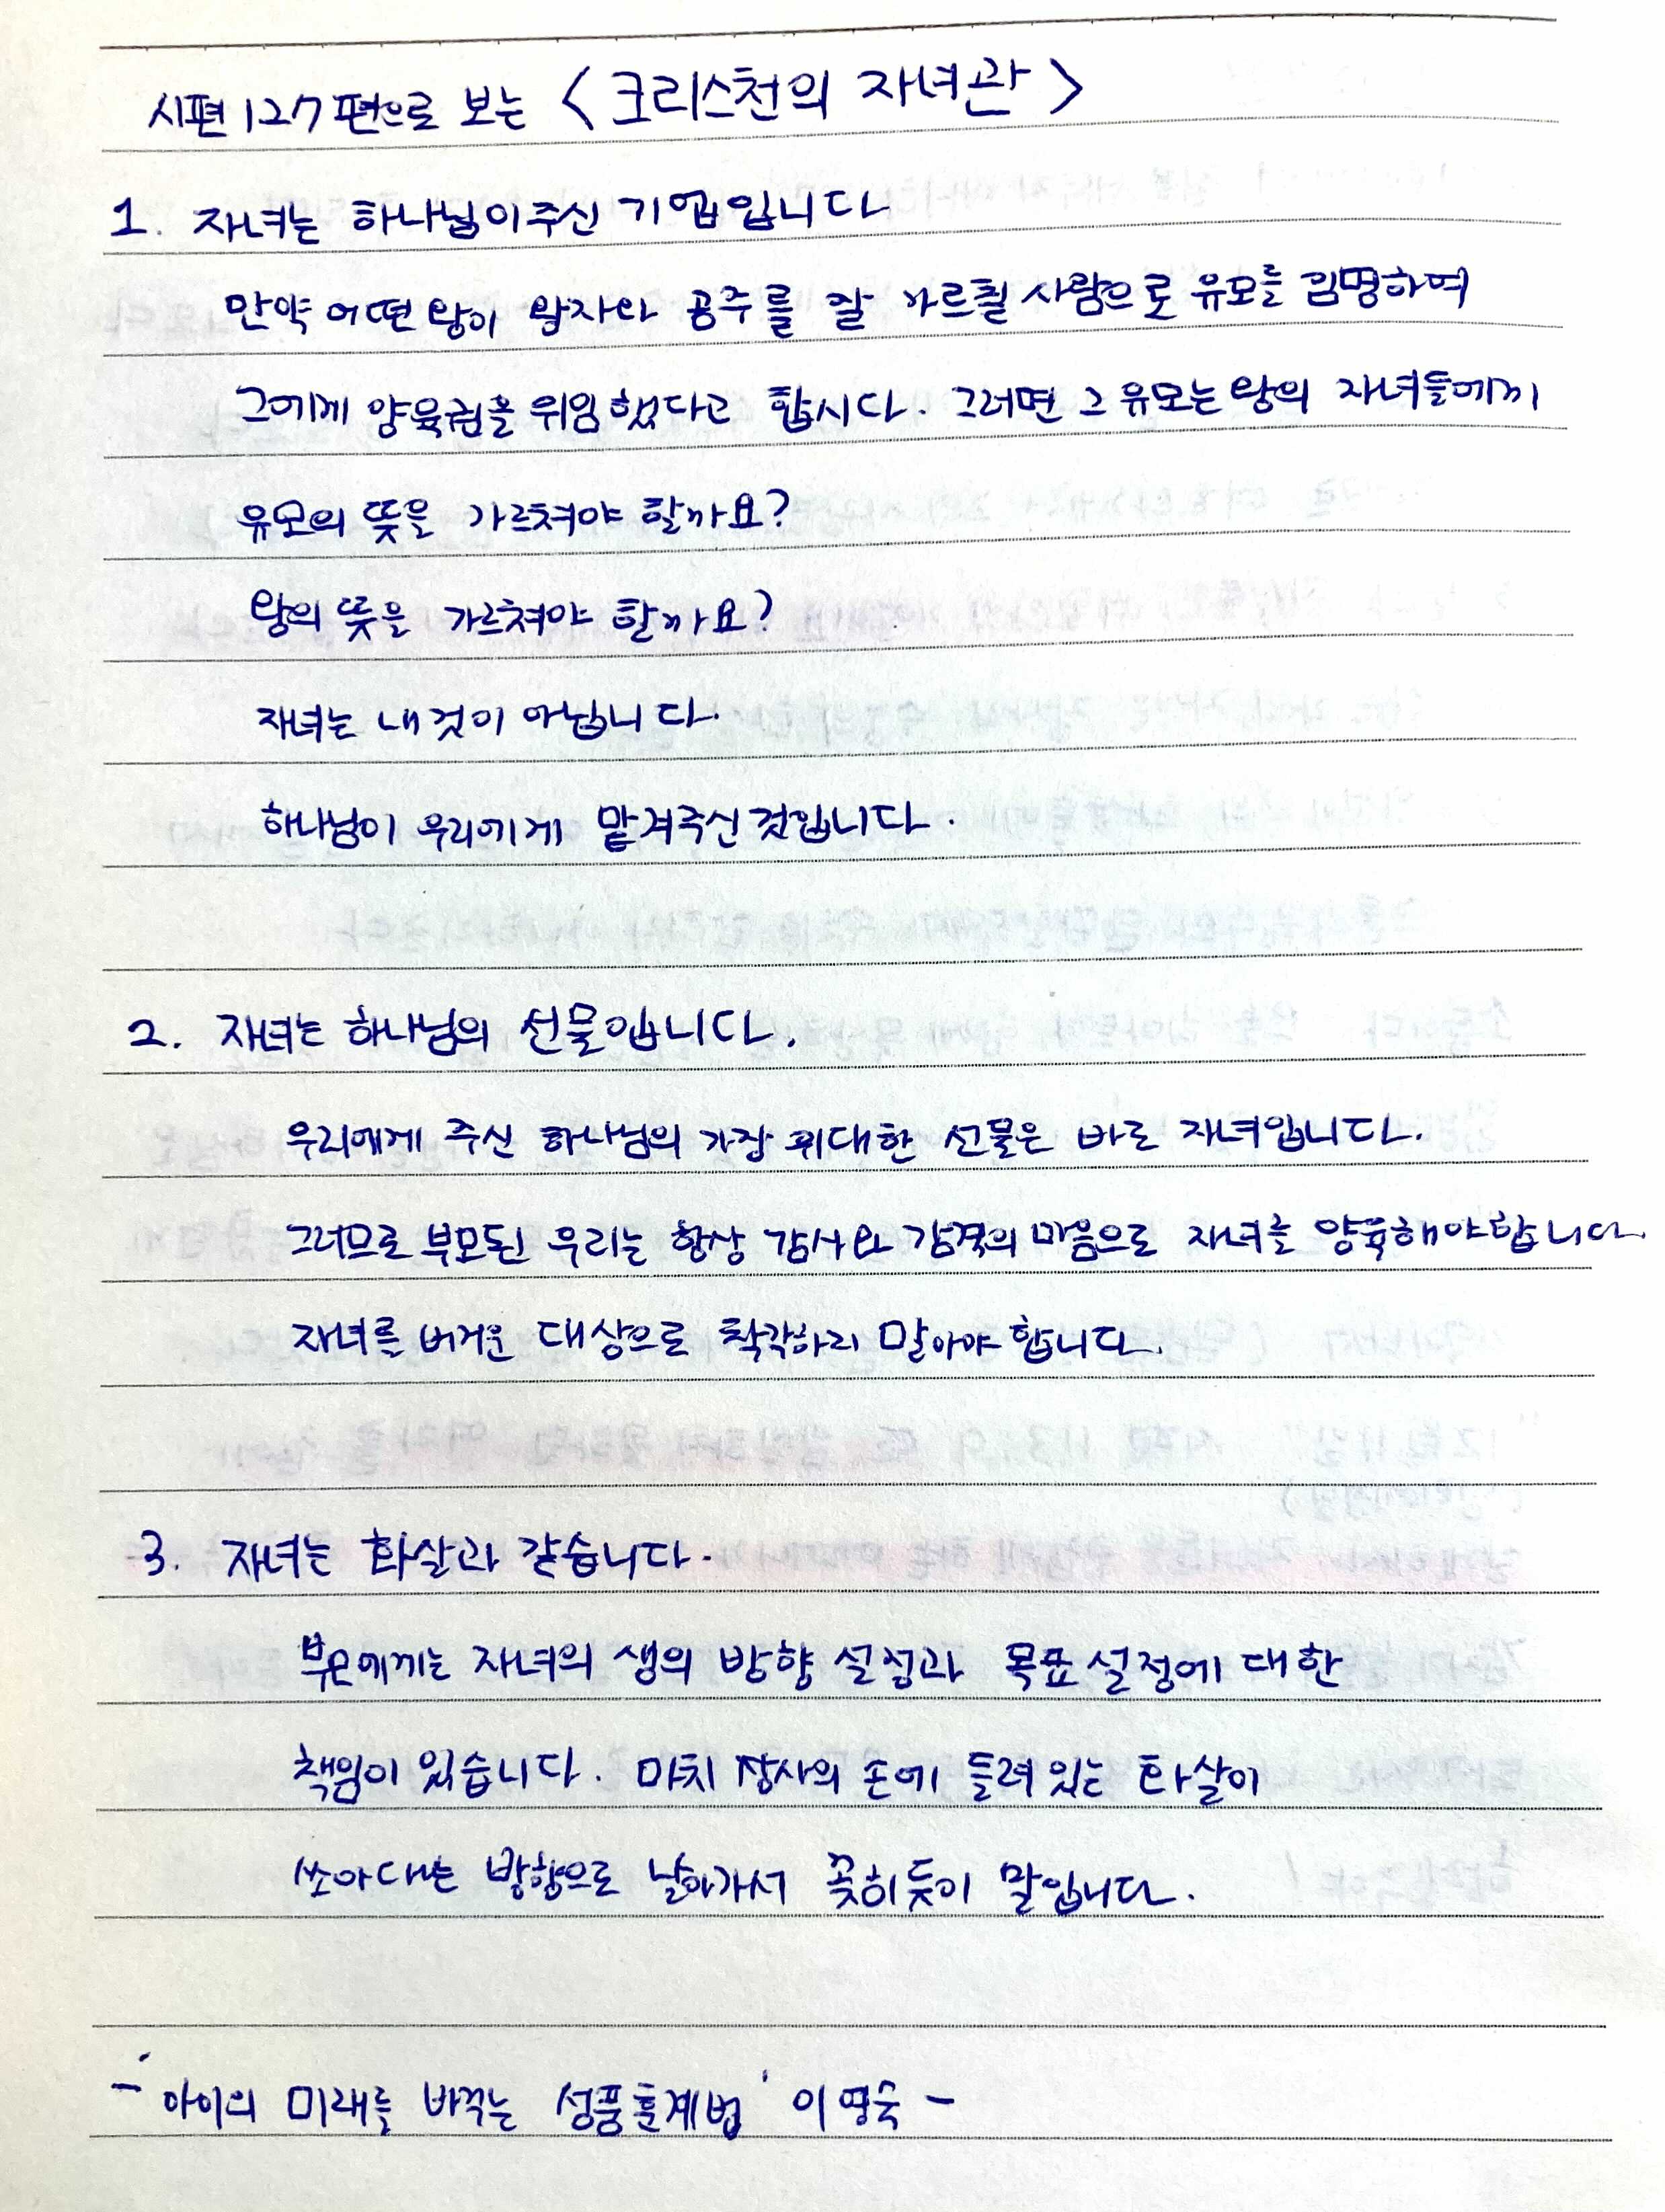 시편127편으로 보는 <크리스천의 자녀관>
1. 자녀는 하나님이주신 기업입니다
만약 어떤 왕이 왕자와 공주를 잘 가르칠 사람으로 유모를 임명하여
그에게 양육권을 위임했다고 합시다. 그러면 그 유모는 왕의 자녀들에게
유모의 뜻을 가르쳐야 할까요?
왕의 뜻을 가르쳐야 할까요?
자녀는 내 것이 아닙니다.
하나님이 우리에게 맡겨주신 것입니다.
2. 자녀는 하나님의 선물입니다.
우리에게 주신 하나님의 가장 위대한 선물은 바로 자녀입니다.
그러므로 부모된 우리는 항상 감사와 감격의 마음으로 자녀를 양육해야합니다.
자녀를 버거운 대상으로 착각하지 말아야 합니다.
3. 자녀는 화살과 같습니다.
부모에게는 자녀의 생의 방향 설정과 목표 설정에 대한
책임이 있습니다. 마치 장사의 손에 들려 있는 화살이
쏘아대는 방향으로 날아가서 꽂히듯이 말입니다.
- '아이의 미래를 바꾸는 성품훈계법' 이영숙 -